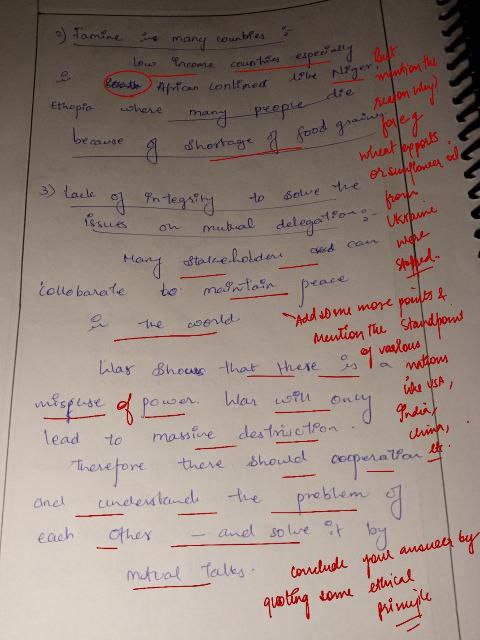 2) Famine in many countries :-
low income countries especially
in African continent like Niger
Ethopia where many people die
because of shortage of food grains
But
mention the
reason why?
for e.g
wheat exports
or sunflower oil
from
Ukraine
were
stopped.
3) Lack of integrity to solve the
issues on mutual delegation :-
Many stakeholders can
collobarate to maintain peace
in the world
Add some more points &
Mention the Standpoint
of various
nations
like USA,
India,
China,
etc.
War shows that there is a
misuse of power. War will only
lead to massive destruction.
Therefore there should cooperation
and understands the problem of
each other - and solve it by
mutual talks.
conclude your answer by
quoting some ethical
principle